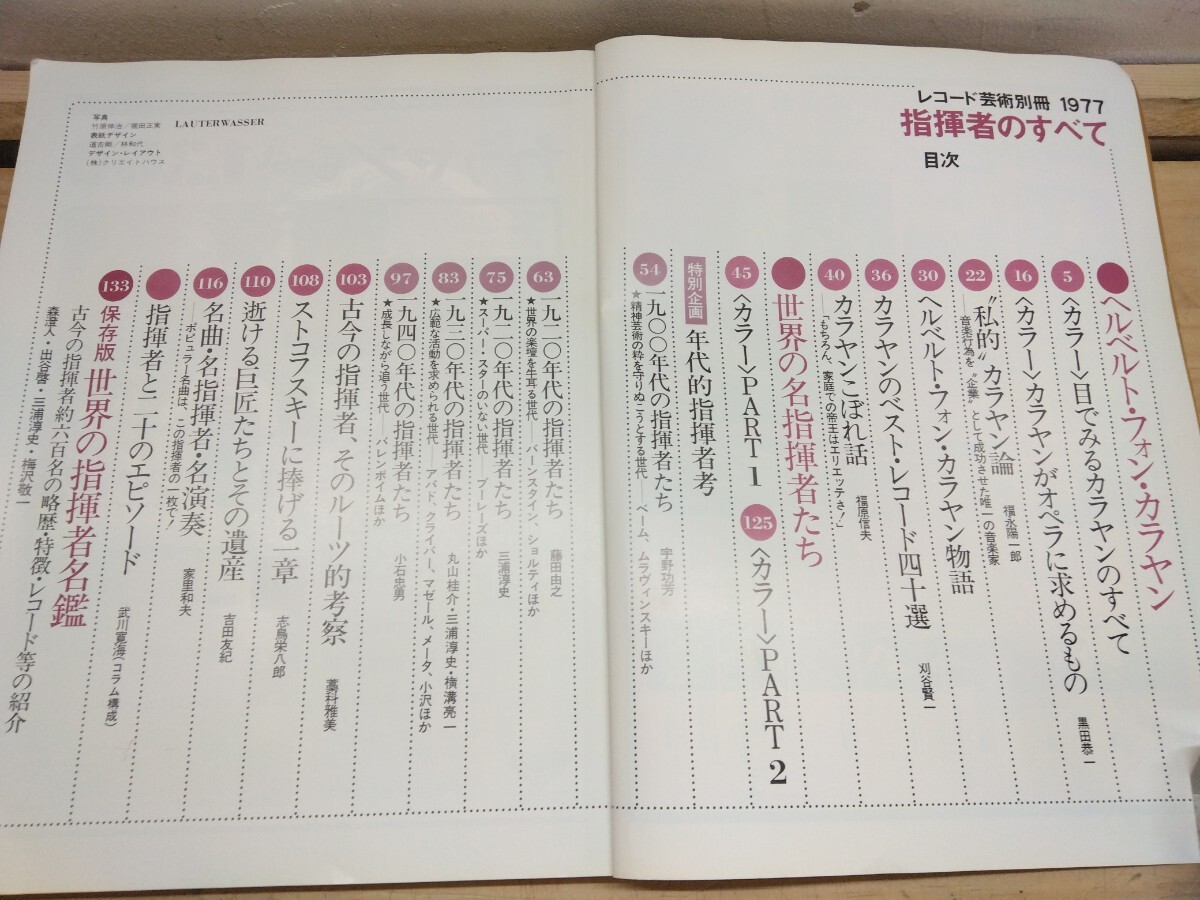 レコード芸術別冊 1977
指揮者のすべて
目次
●ヘルベルト・フォン・カラヤン
5
〈カラー〉目でみるカラヤンのすべて
16
〈カラー〉カラヤンがオペラに求めるもの
黒田恭一
22
〝私的〟カラヤン論
福永陽一郎
──音楽行為を〝企業〟として成功させた唯一の音楽家
30
ヘルベルト・フォン・カラヤン物語
36
カラヤンのベスト・レコード四十選
刈谷賢一
40
カラヤンこぼれ話
福原信夫
──「もちろん、家庭での帝王はエリエッテさ!」
●世界の名指揮者たち
45
〈カラー〉PART 1
125
〈カラー〉PART 2
特別企画
年代的指揮者考
54
一九〇〇年代の指揮者たち
宇野功芳
★精神芸術の粋を守りぬこうとする世代──ベーム、ムラヴィンスキーほか
63
一九一〇年代の指揮者たち
藤田由之
★世界の楽壇を牛耳る世代──バーンスタイン、ショルティほか
75
一九二〇年代の指揮者たち
三浦淳史
★スーパー・スターのいない世代──ブーレーズほか
83
一九三〇年代の指揮者たち
丸山桂介・三浦淳史・横溝亮一
★広範な活動を求められる世代──アバド、クライバー、マゼール、メータ、小沢ほか
97
一九四〇年代の指揮者たち
小石忠男
★成長しながら追う世代──バレンボイムほか
103
古今の指揮者、そのルーツ的考察
藁科雅美
108
ストコフスキーに捧げる一章
志鳥栄八郎
110
逝ける巨匠たちとその遺産
吉田友紀
116
名曲・名指揮者・名演奏
家里和夫
──ポピュラー名曲は、この指揮者の一枚で!
●
指揮者と二十のエピソード
武川寛海(コラム構成)
133
保存版 世界の指揮者名鑑
古今の指揮者約六百名の略歴・特徴・レコード等の紹介
森澄人・出谷啓・三浦淳史・梅沢敬一
写真
竹原伸治/堀田正実
LAUTERWASSER
表紙デザイン
道吉剛/林和代
デザイン・レイアウト
(株)クリエイトハウス